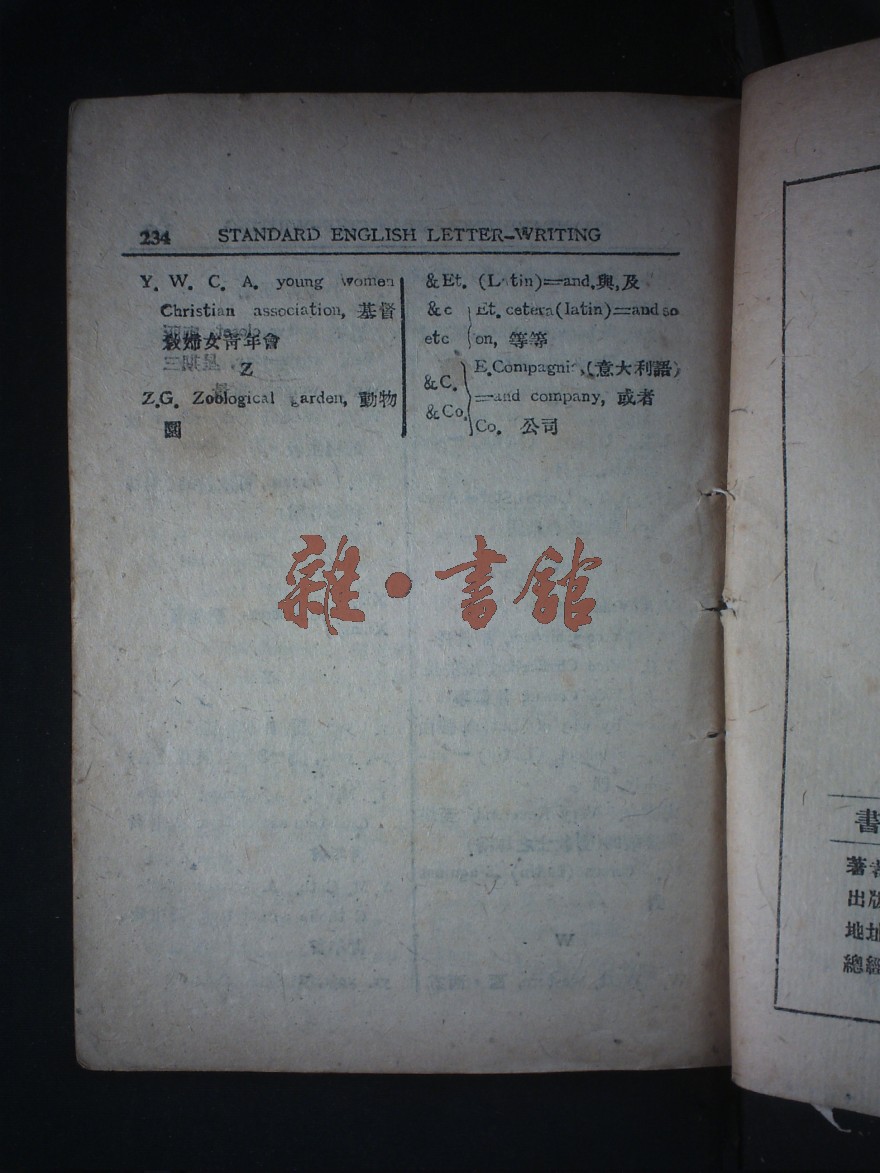 234 STANDARD ENGLISH LETTER-WRITING
Y. W. C. A. young women
Christian association, 基督
敎婦女靑年會
Z
Z.G. Zoological garden, 動物
園
&Et. (Latin)=and.與,及
&c Et. cetera(latin)=and so
etc on, 等等
&C. E.Compagnia,(意大利語)
=and company, 或者
&Co. Co. 公司
雜·書館
書
著者
出版
地址
總經